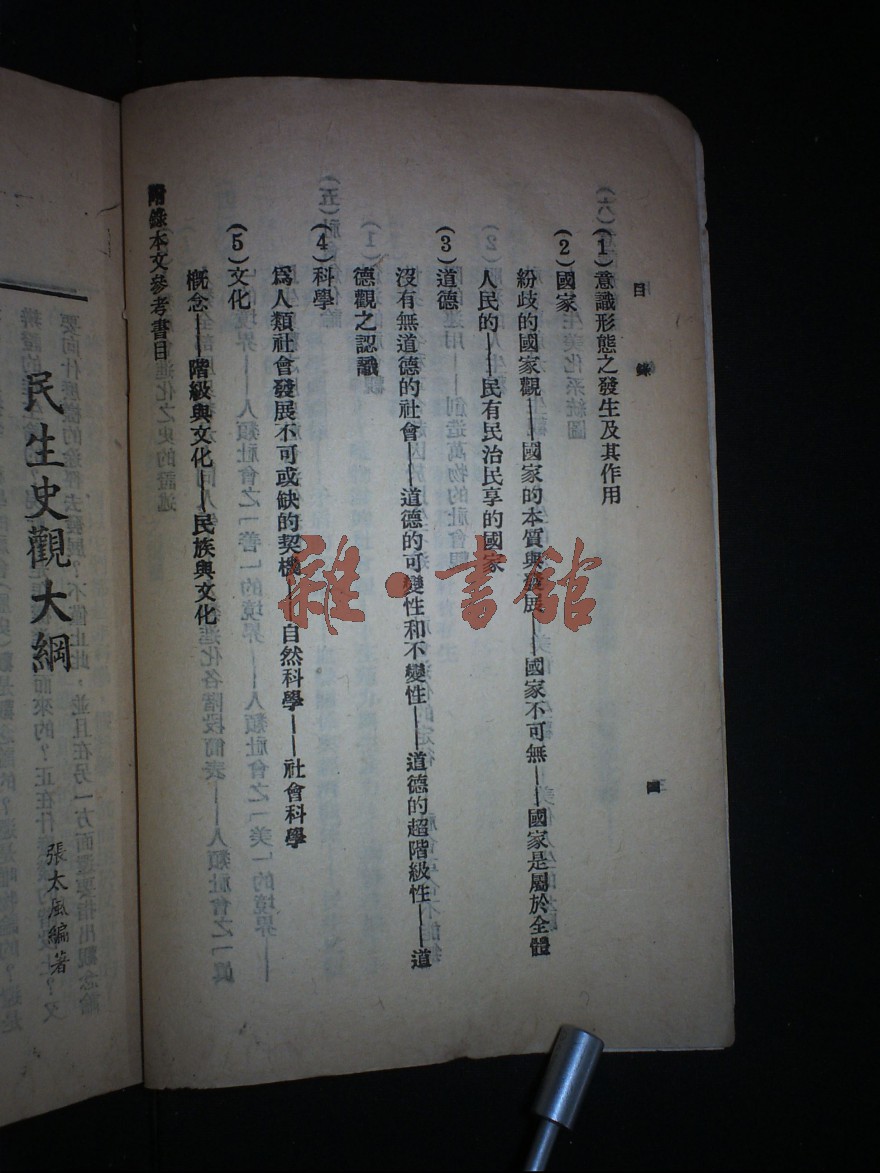 目錄
四
(1)意識形態之發生及其作用
(2)國家
紛歧的國家觀——國家的本質與發展——國家不可無——國家是屬於全體
人民的——民有民治民享的國家
(3)道德
沒有無道德的社會——道德的可變性和不變性——道德的超階級性——道
德觀之認識
(4)科學
爲人類社會發展不可或缺的契機——自然科學——社會科學
(5)文化
概念——階級與文化——民族與文化
附錄本文參考書目
民生史觀大綱
張太風編著
雜·書館